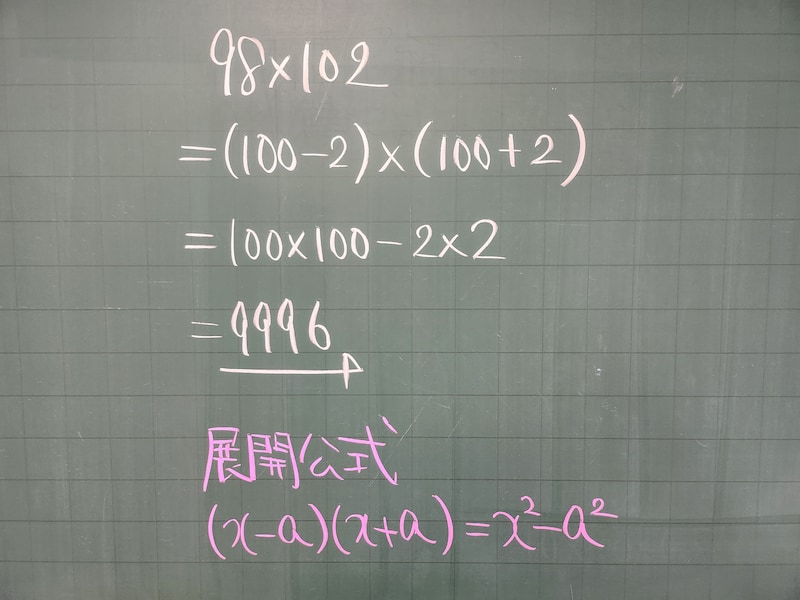 98×102
=(100-2)×(100+2)
=100×100-2×2
=9996
展開公式
(x-a)(x+a)=x²-a²